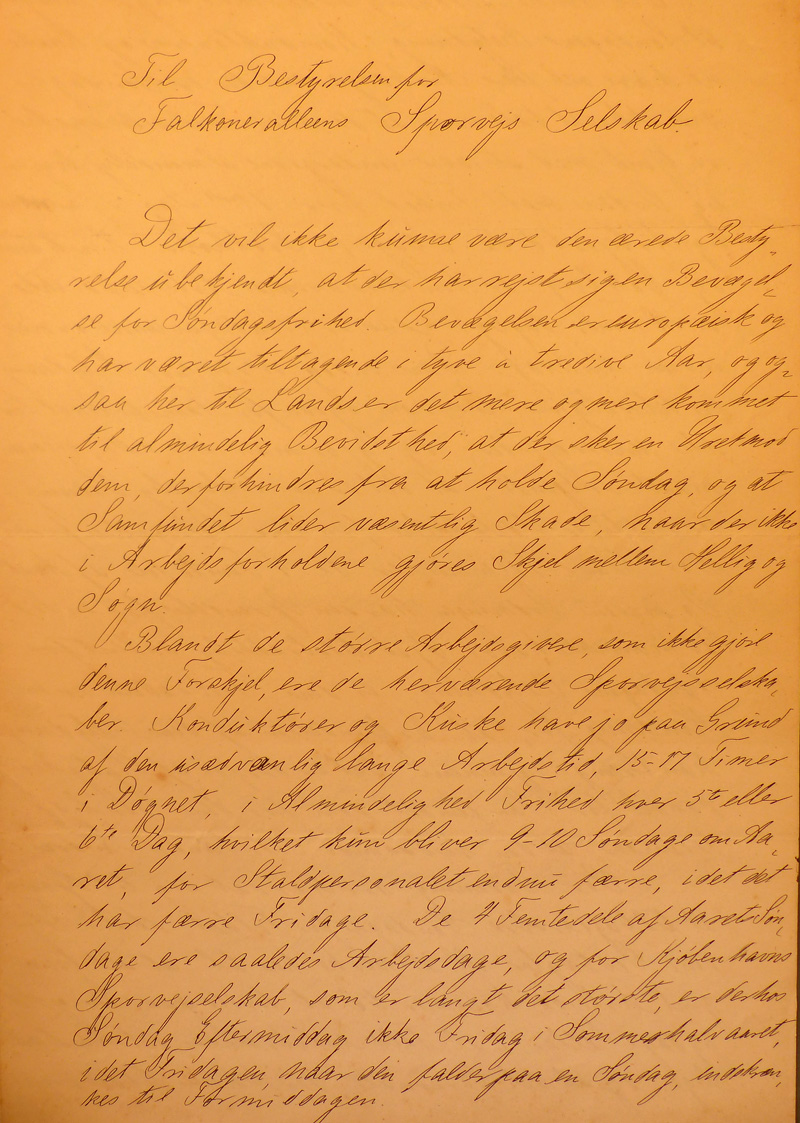 Til Bestyrelsen for
Falkoneralleens Sporvejs Selskab.
Det vil ikke kunne være den ærede Besty-
relse ubekjendt, at der har rejst sig en Bevægel-
se for Søndagsfrihed. Bevægelsen er europæisk og
har været tiltagende i tyve à tredive Aar, og og-
saa her til Lands er det mere og mere kommet
til almindelig Bevidsthed, at der sker en Uret mod
dem, der forhindres fra at holde Søndag, og at
Samfundet lider væsentlig Skade, naar der ikke
i Arbejdsforholdene gjøres Skjel mellem Hellig og
Søgn.
Blandt de større Arbejdsgivere, som ikke gjøre
denne Forskjel, ere de herværende Sporvejsselska-
ber. Konduktører og Kuske have jo paa Grund
af den usædvanlig lange Arbejdstid, 15-17 Timer
i Døgnet, i Almindelighed Frihed hver 5te eller
6te Dag, hvilket kun bliver 9-10 Søndage om Aa-
ret, for Staldpersonalet endnu færre, idet det
har færre Fridage. De 4 Femtedele af Aarets Søn-
dage ere saaledes Arbejdsdage, og for Kjøbenhavns
Sporvejselskab, som er langt det største, er derhos
Søndag Eftermiddag ikke Fridag i Sommerhalvaaret,
idet Fridagen, naar den falder paa en Søndag, indskræn-
kes til Formiddagen.